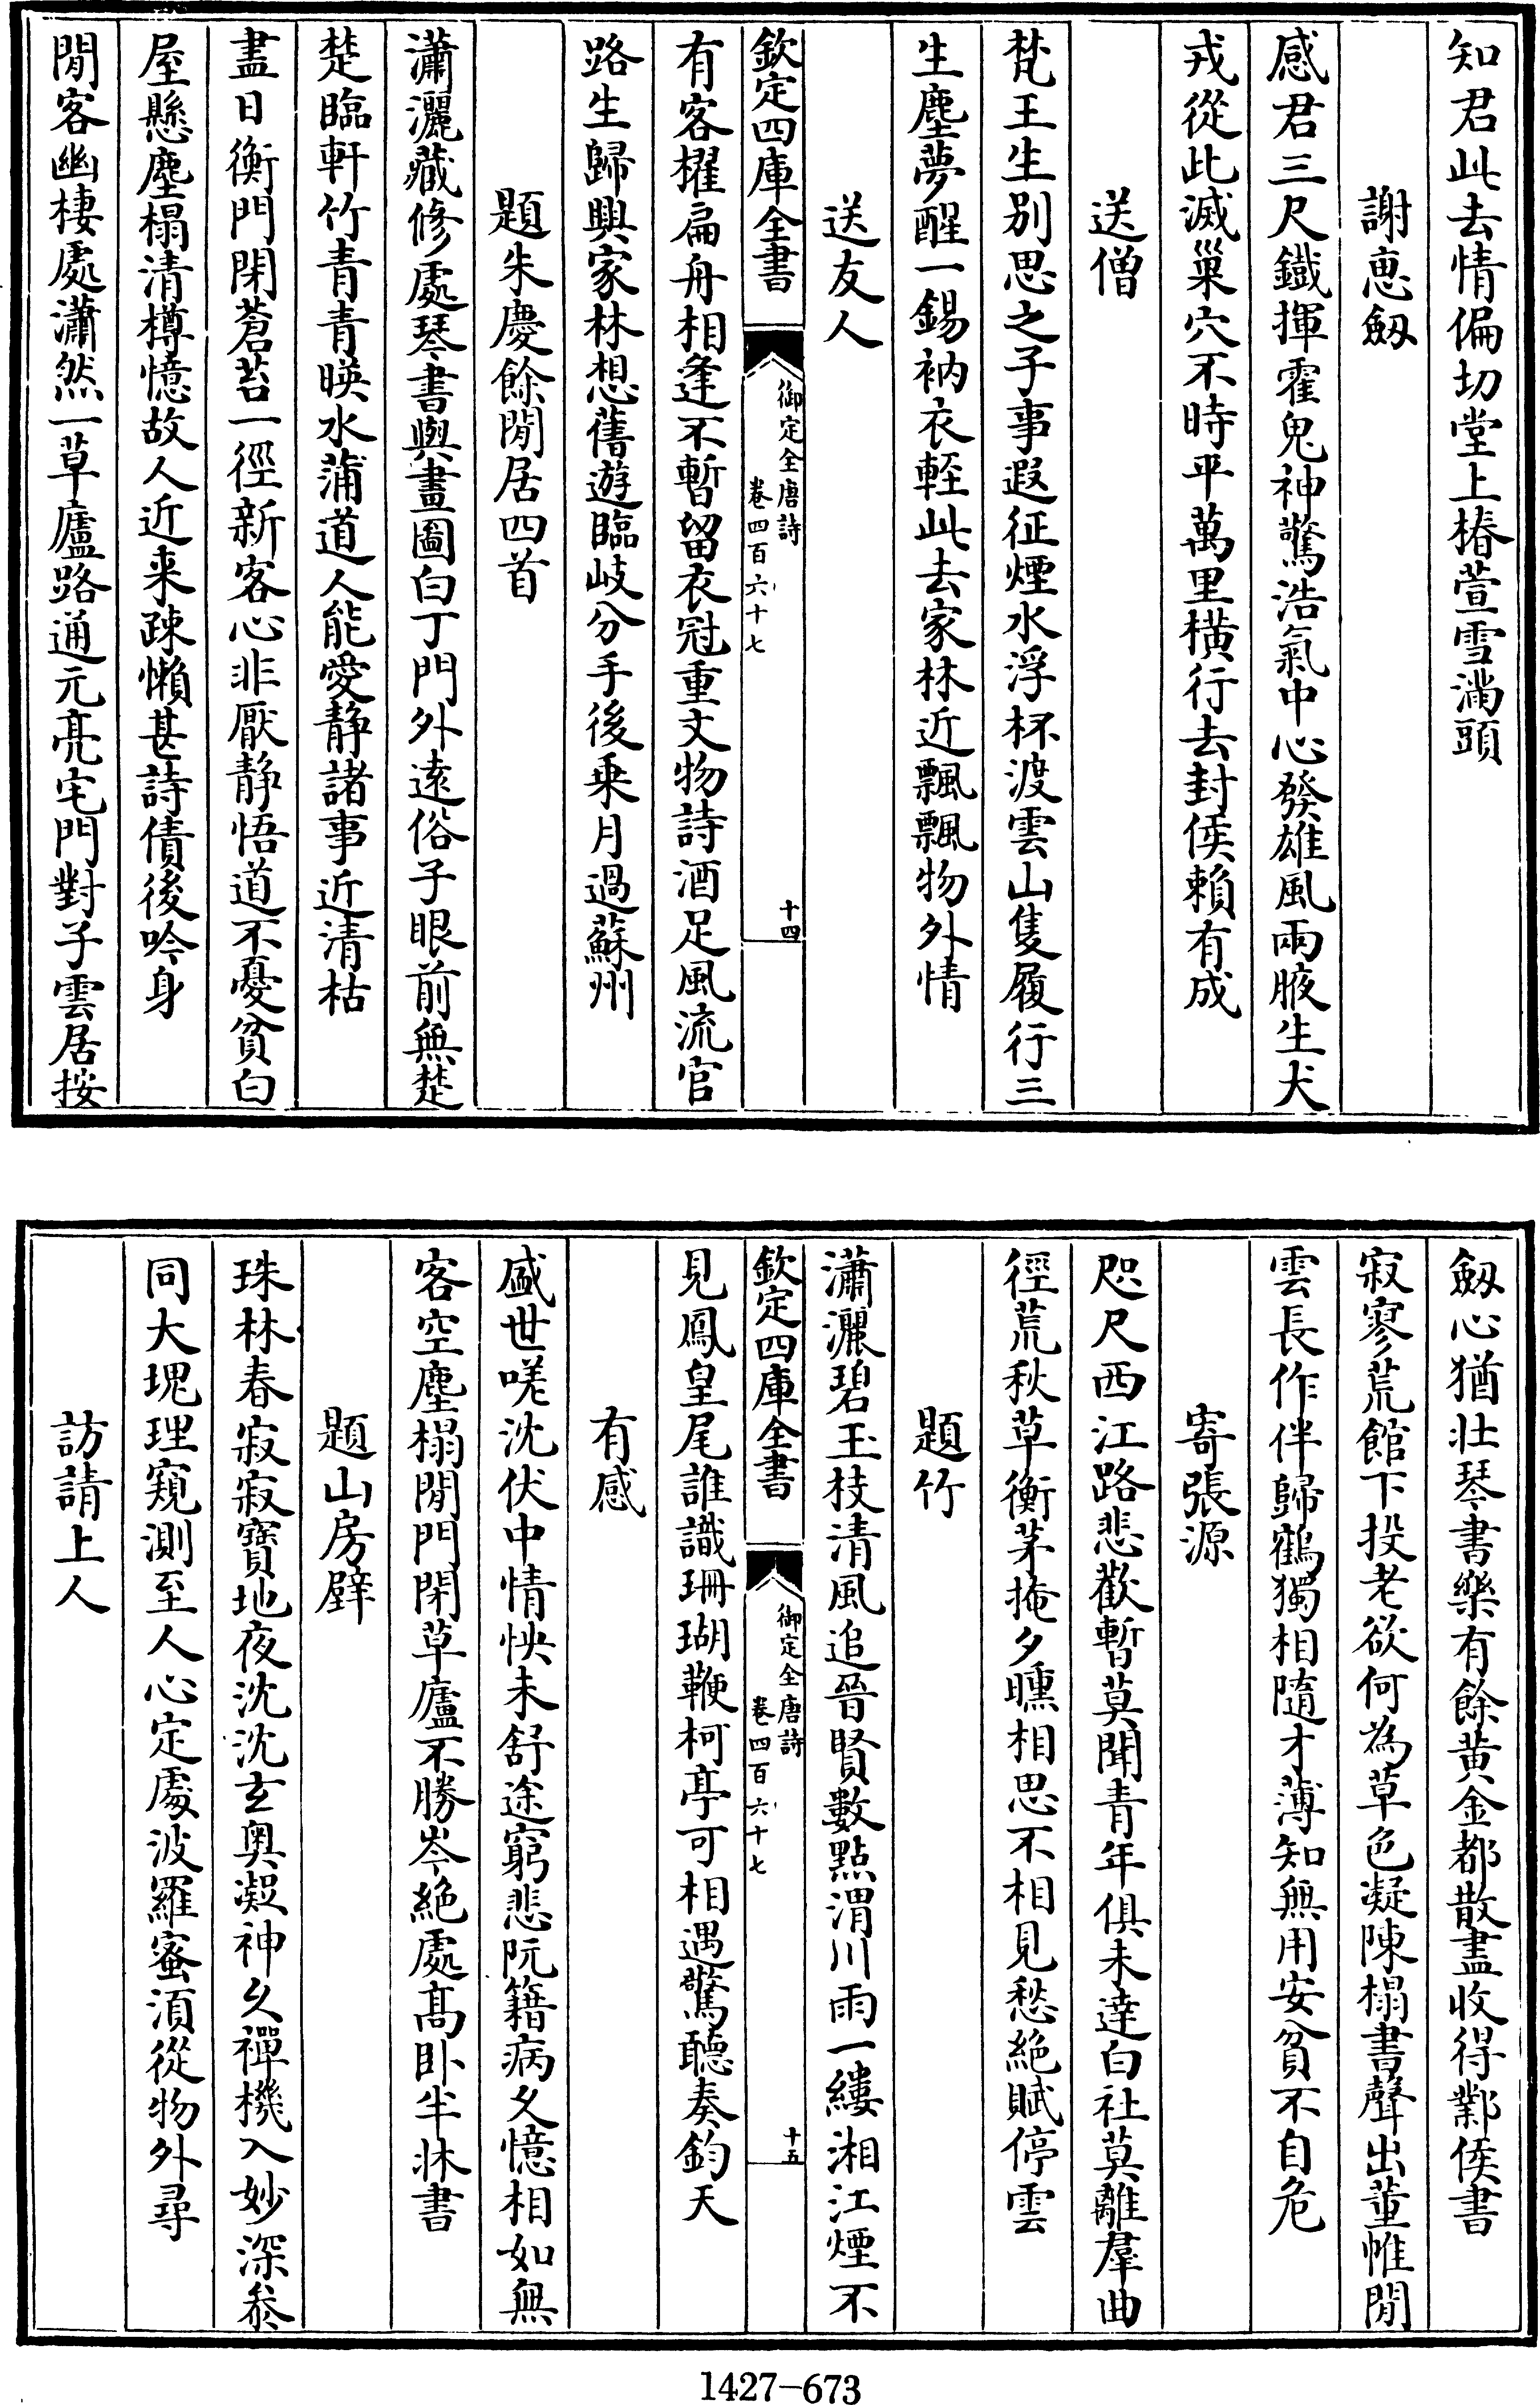 知君此去情偏切堂上椿萱雪滿頭
謝惠劔
感君三尺鐵揮霍鬼神驚浩氣中心發雄風兩腋生犬
戎從此滅巢穴不時平萬里橫行去封侯賴有成
送僧
梵王生別思之子事遐征煙水浮杯渡雲山隻履行三
生塵夢醒一錫衲衣輕此去家林近飄飄物外情
送友人
欽定四庫全書
御定全唐詩
卷四百六十七
十四
有客櫂扁舟相逢不暫留衣冠重文物詩酒足風流官
路生歸興家林想舊遊臨岐分手後乘月過蘇州
題朱慶餘閒居四首
瀟灑藏修處琴書與畫圖白丁門外遠俗子眼前無楚
楚臨軒竹青青暎水蒲道人能愛静諸事近清枯
盡日衡門閉蒼苔一徑新客心非厭静悟道不憂貧白
屋懸塵榻清樽憶故人近来疎懶甚詩債後吟身
閒客幽棲處瀟然一草廬路通元亮宅門對子雲居按
劔心猶壯琴書樂有餘黄金都散盡收得鄴侯書
寂寥荒館下投老欲何為草色凝陳榻書聲出董帷閒
雲長作伴歸鶴獨相隨才薄知無用安貧不自危
寄張源
咫尺西江路悲歡暫莫聞青年俱未達白社莫離羣曲
徑荒秋草衡茅掩夕曛相思不相見愁絶賦停雲
題竹
瀟灑碧玉枝清風追晉賢數點渭川雨一縷湘江煙不
欽定四庫全書
御定全唐詩
卷四百六十七
十五
見鳳皇尾誰識珊瑚鞭柯亭可相遇驚聽奏鈞天
有感
盛世嗟沈伏中情怏未舒途窮悲阮籍病久憶相如無
客空塵榻閒門閉草廬不勝岑絶處髙卧半牀書
題山房壁
珠林春寂寂寶地夜沈沈玄奥凝神久禪機入妙深叅
同大塊理窺測至人心定處波羅蜜湏從物外尋
訪請上人
1427-673